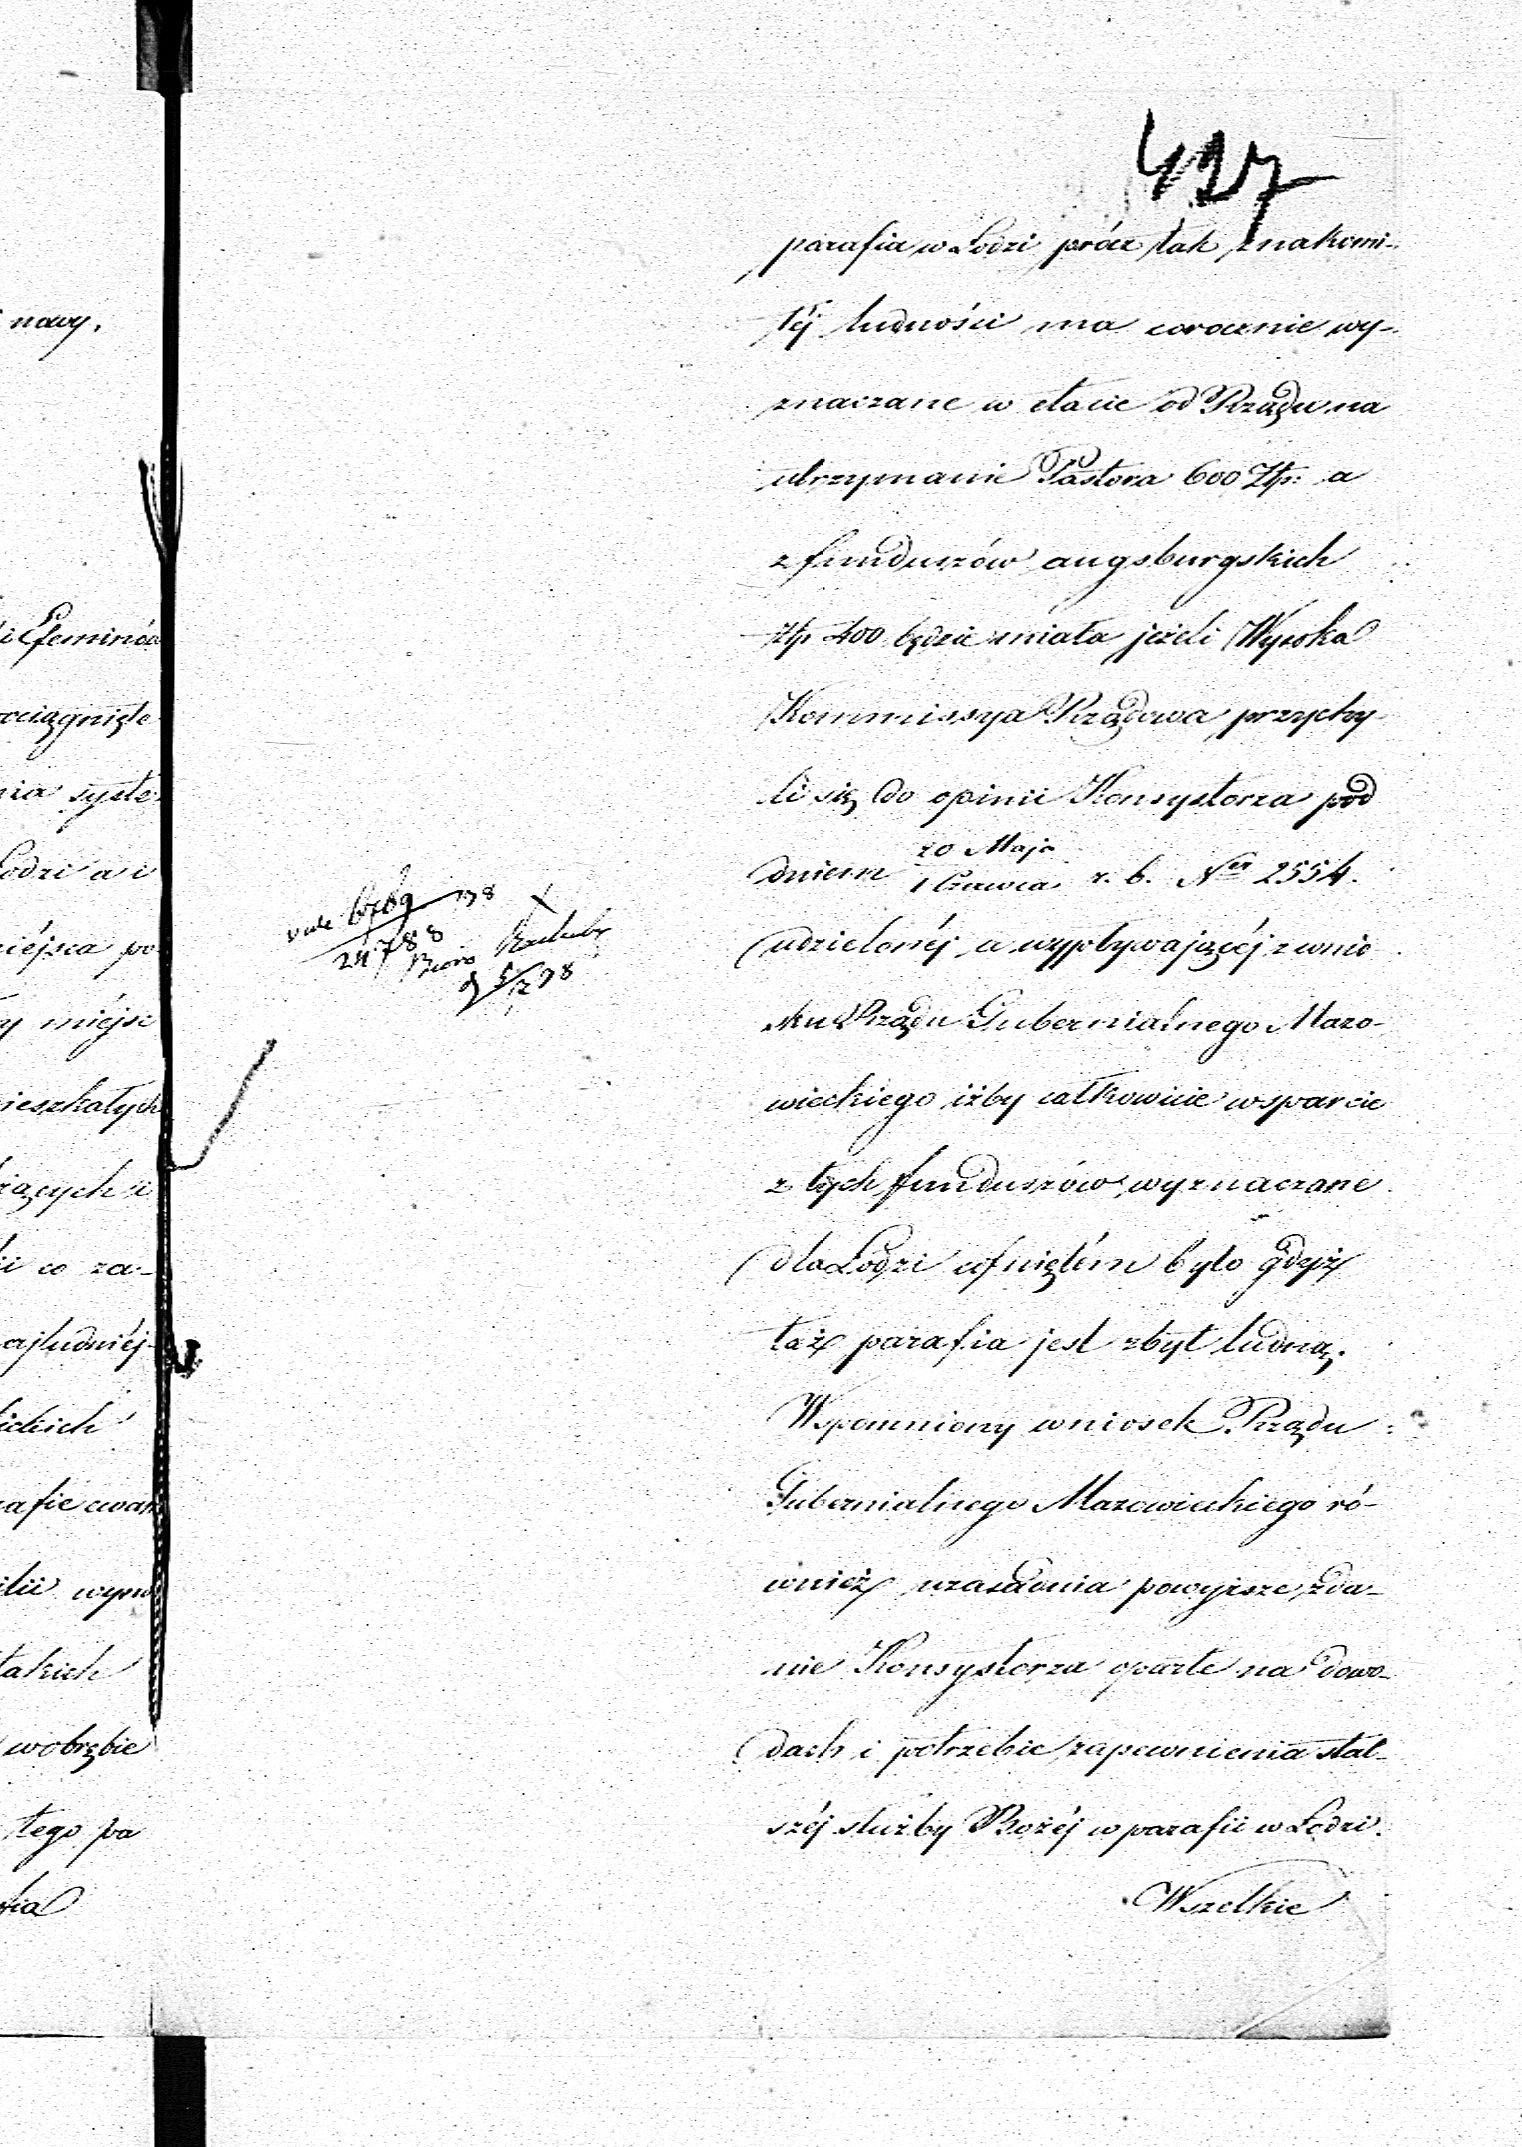 427
parafia w Łodzi prócz tak znakomi-
téj ludności ma corocznie wy-
znaczane w etacie od Rządu na
utrzymanie Pastora 600 Złp: a
z funduszów augsburgskich
Złp 400 będzie miała jeżeli Wysoka
Kommissya Rządowa przychy-
li się do opinii Konsystorza pod
dniem 20 Maja
1 Czerwca r. b. Nr 2554.
udzielonéj a wypływającéj z wnio
sku Rządu Gubernialnego Mazo-
wieckiego iżby całkowicie wsparcie
z tych funduszów wyznaczane
dla Łodzi cofniętém było gdyż
taż parafia jest zbyt ludną.
Wspomniony wniosek Rządu
Gubernialnego Mazowieckiego ró-
wnież uzasadnia powyższe zda-
nie Konsystorza oparte na dowo-
dach i potrzebie zapewnienia stal-
széj służby Bożéj w parafii w Łodzi.
Wszelkie
nowy.
ociągnięte
nia syste
Łodzi a i
iéjsca po
y miéjsc
ieszkałych
i co za-
ajludniéj-
takich
w obrębie
tego pa